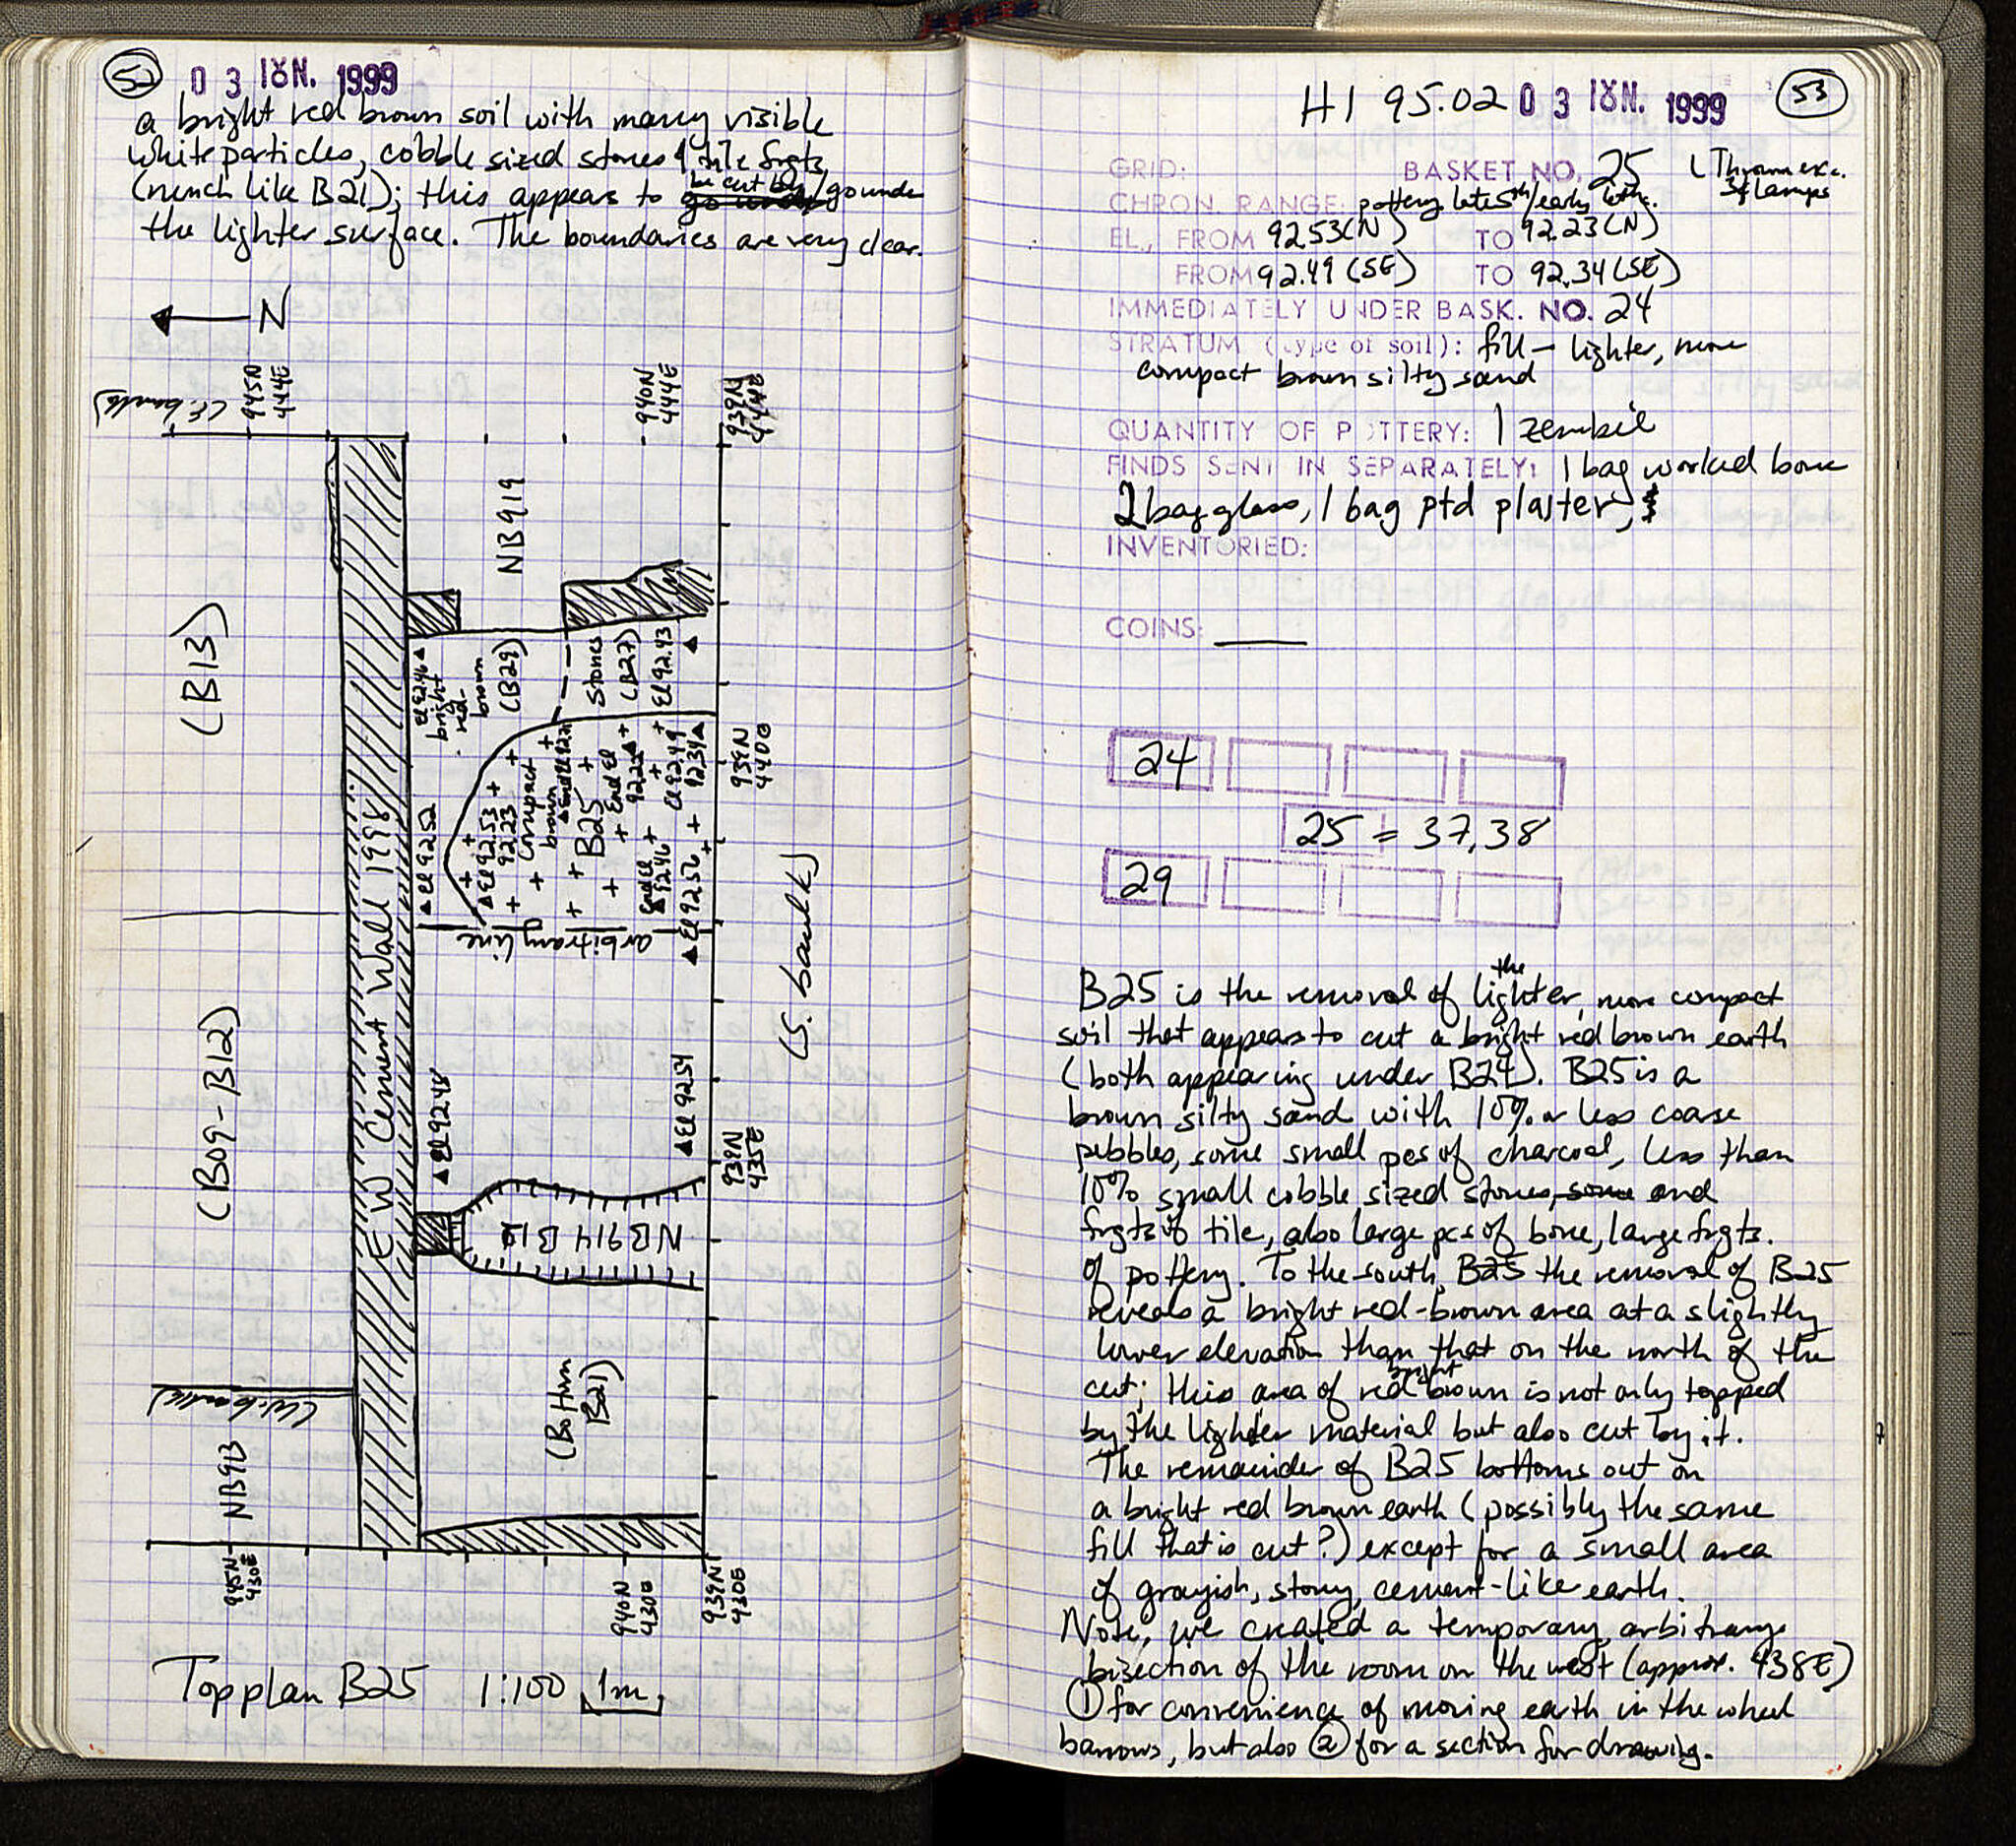 52
03 ΙΟΥΝ. 1999
a bright red brown soil with many visible
white particles, cobble sized stones & tile frgts
(much like B21); this appears to be cut by/go under
the lighter surface. The boundaries are very clear.
N
(E. baulk)
945N
444E
940N
444E
939N
444E
NB919
(B13)
El 92.46
bright
red-
brown
(B29)
Stones
(B27)
El 92.43
E-W Cement Wall 1998
El 92.52
El 92.53
92.23
Compact
brown
End El 92.21
B25
End El
92.22
El 92.49
92.34
End El
92.46
El 92.56
939N
440E
arbitrary line
(S. baulk)
(B09-B12)
El 92.48
El 92.54
939N
435E
NB914 B12
(Bottom
B21)
(W. baulk)
NB913
945N
430E
940N
430E
939N
430E
Top plan B25 1:100 1m
H1 95.02 03 ΙΟΥΝ. 1999
53
GRID: BASKET NO. 25 (Thrown exc.
3 f lamps
CHRON. RANGE: pottery late 5th/early 6th c.
EL., FROM 92.53(N) TO 92.23(N)
FROM 92.49 (SE) TO 92.34 (SE)
IMMEDIATELY UNDER BASK. NO. 24
STRATUM (type of soil): fill – lighter, more
compact brown silty sand
QUANTITY OF POTTERY: 1 zembil
FINDS SENT IN SEPARATELY: 1 bag worked bone
2 bag glass, 1 bag ptd plaster,
INVENTORIED:
COINS:
24
25 = 37,38
29
B25 is the removal of the lighter, more compact
soil that appears to cut a bright red brown earth
(both appearing under B24). B25 is a
brown silty sand with 10% or less coarse
pebbles, some small pcs of charcoal, less than
10% small cobble sized stones, some and
frgts of tile, also large pcs of bone, large frgts.
of pottery. To the south, B25 the removal of B25
reveals a bright red-brown area at a slightly
lower elevation than that on the north of the
cut; this area of bright red brown is not only topped
by the lighter material but also cut by it.
The remainder of B25 bottoms out on
a bright red brown earth (possibly the same
fill that is cut?) except for a small area
of grayish, stony, cement-like earth.
Note, we created a temporary, arbitrary
bisection of the room on the west (approx. 438E)
① for convenience of moving earth in the wheel
barrows, but also ② for a section for drawing.